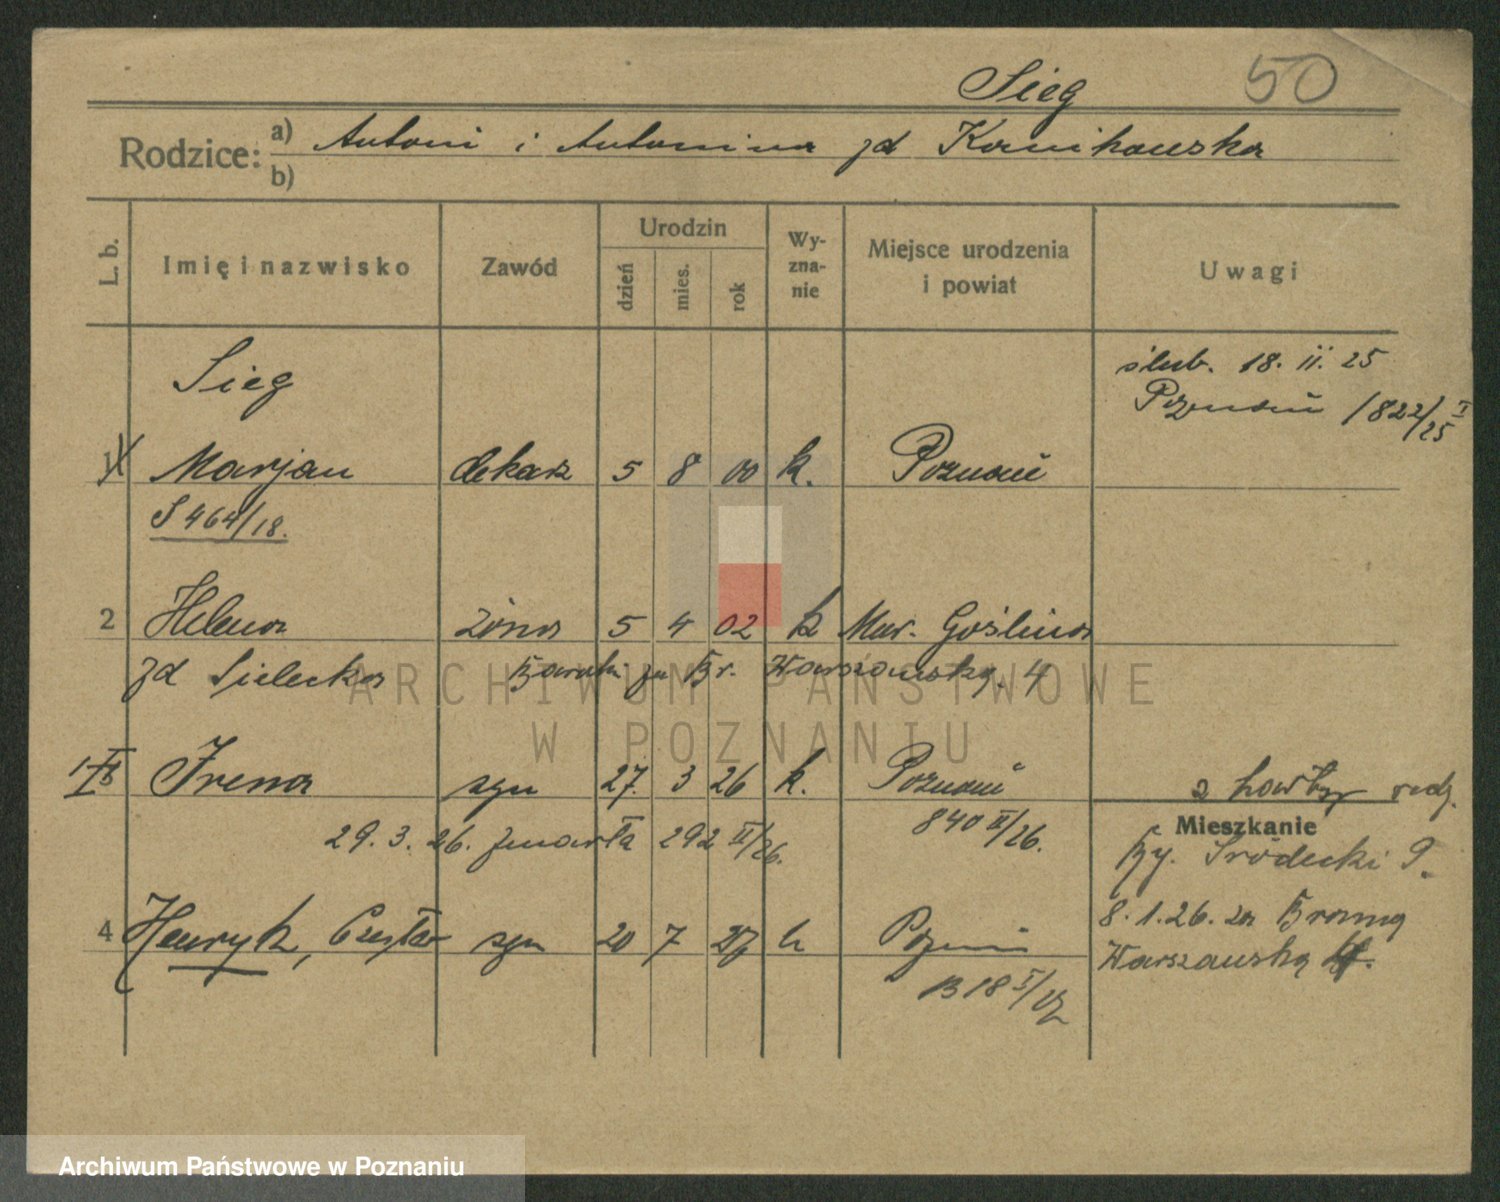 Sieg 50
Rodzice: a) Antoni i Antonina zd Kornikowska
b)
L. b. Imię i nazwisko Zawód Urodzin dzień mies. rok Wy-zna-nie Miejsce urodzenia i powiat Uwagi
Sieg
ślub. 18. II. 25
Poznań 1822/I/25
1 Marjan dekarz 5 8 00 k. Poznań
S 464/18.
2 Helena żona 5 4 02 k Mur. Goślina
zd Sielecka Baraki za Br. Warszawską. 4
ARCHIWUM PAŃSTWOWE
W POZNANIU
Irena 27. 3 26 k. Poznań
840 II/26.
29. 3. 26. zmarła 292 II/26.
Mieszkanie
Ry. Śródecki 9.
8. 1. 26. za Bramą
Warszawską
4 Henryk, Czesław 20 7 27 k Poznań
Archiwum Państwowe w Poznaniu